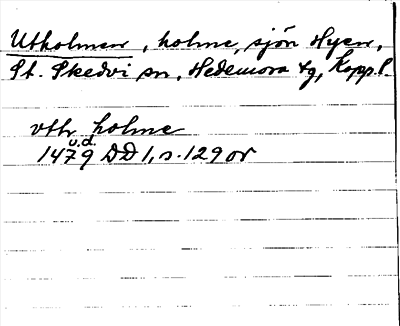 Utholmen, holme, sjön Hyen,
St. Skedvi sn, Hedemora tg, Kopp.l.
vthr holme
u.d.
1479 DD 1, s. 129 or